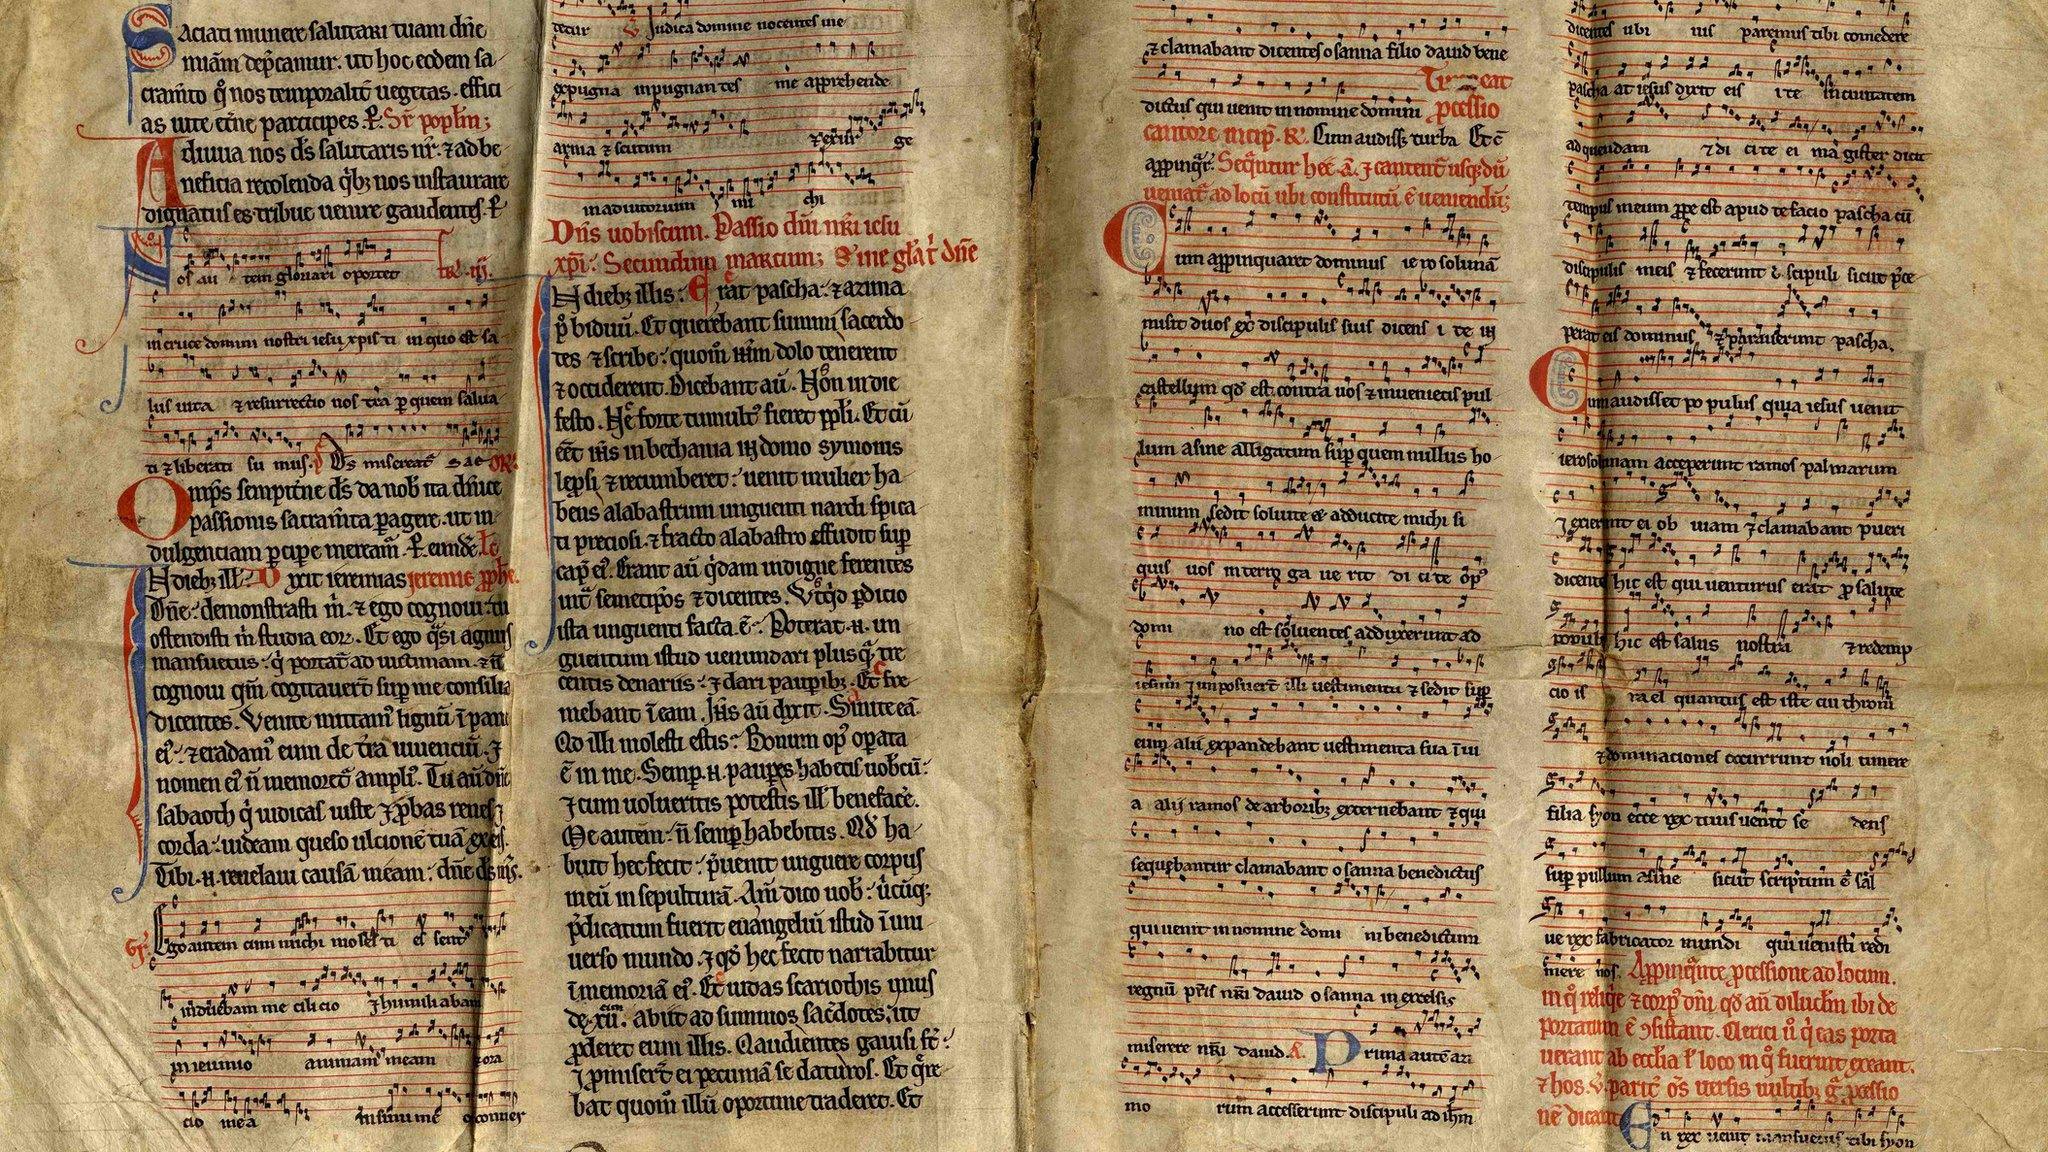 Saciati munere salutari tuam dñe
miam dep̃camur. ut hoc eodem sa
cram̃to q̃ nos temporalit̃ vegetas. effici
as uite et̃ne participes. P̃. Sr̃ pop̃lm;
Adiuua nos d̃s salutaris nr̃. ⁊ ad be
neficia recolenda q̃bꝫ nos instaurare
dignatus es tribue uenire gaudentes. P̃
Nos au tem gloriari oportet
in cruce domini nostri iesu xp̃is ti in quo est sa
lus uita ⁊ resurrectio nos tra p̱ quem salua
ti ⁊ liberati su mus. D̃s misereat̃
Omp̃s sempit̃ne d̃s da nob̃ ita d̃nice
passionis sacram̃ta p̱agere. ut in
dulgenciam p̱cipe meream̃. P̃ eund̃.
In diebꝫ ill̃. Dixit ieremias ieremie pp̃he.
Dñe. demonstrasti m̃. ⁊ ego cognoui. tu
ostendisti m̃ studia eoꝝ. Et ego q̃si agnus
mansuetus. q̃ portat̃ ad uictimam. ⁊ ñ
cognoui qm̃ cogitauer̃t sup̱ me consilia
dicentes. Venite mittam᷒ lignũ ĩ pane
ei᷒. ⁊ eradam᷒ eum de t̃ra uiuenciũ. ⁊
nomen ei᷒ ñ memoret̃ ampli᷒. Tu aũ dñe
sabaoth q̃ iudicas iuste ⁊ p̃bas renes ⁊
corda. uideam queso ulcionẽ tuã ex eis.
Tibi .n. reuelaui causã meam. dñe d̃s m̃s.
Gr̃. Ego autem cum michi mo les ti es sent
induebam me cilicio ⁊ humili abam
in ieiunio animam meam ⁊ ora
cio mea in sinu me o conuer
tetur V̓. Iudica domine nocentes me
expugna inpugnan tes me apprehende
arma ⁊ scutum ⁊ exur ge
in adiutorium mi chi
Dñs uobiscum. Passio dñi nr̃i iesu
xp̃i. Secundum marcum; Sine gl̃a t̃ dñe
In diebꝫ illis. Erat pascha. ⁊ azima
p̃ biduũ. Et querebant summi sacerdo
tes ⁊ scribe. quom̃ ih̃m dolo tenerent
⁊ occiderent. Dicebant aũ. Non in die
festo. Ne forte tumult᷒ fieret pp̃li. Et cũ
eet̃ ih̃s in bethania in domo symonis
lep̱si ⁊ recumberet. uenit mulier ha
bens alabastrum unguenti nardi spica
ti preciosi. ⁊ fracto alabastro effudit sup̱
cap̃ ei᷒. Erant aũ q̃dam indigne ferentes
int̃ semetip̃os ⁊ dicentes. Vtq̃d p̱dicio
ista unguenti facta ẽ. Poterat .n. un
guentum istud uenundari plusq̃ tre
centis denariis. ⁊ dari paup̱ibꝫ. Et fre
mebant ĩ eam. Ih̃s aũ dixit. Sinite eã.
Qd illi molesti estis. Bonum op᷒ op̱ata
ẽ in me. Semp̱ .n. paup̱es habetis uobcũ.
⁊ cum uolueritis potestis ill̃ beneface̓.
Me autem. ñ semp̱ habebitis. Qd̃ ha
buit hec fecit. p̃uenit unguere corpus
meũ in sepulturã. Am̃ dico uob̃. ubicũqꝫ
p̃dicatum fuerit euangeliũ istud ĩ uni
uerso mundo. ⁊ qd̃ hec fecit narrabitur
ĩ memoriã ei᷒. Et iudas scariothis unus
de .xii. abiit ad summos sac̃dotes. ut
p̱deret eum illis. Qui audientes gauisi st̃.
⁊ p̱miser̃t ei pecuniã se daturos. Et q̃re
bat quom̃ illũ oportune traderet. Et
⁊ clamabant dicentes osanna filio dauid bene
dictus qui uenit in nomine domini p̱cessio
cantore incip̃. R̃. Cum audisꝫ turba Et c̃
appinq̃r̃. Seq̃ntur hec ã. ⁊ cantent̃ usqꝫ dũ
ueniat̃ ad locũ ubi constitutũ ẽ ueniendũ;
Cum appinquaret dominus ie ro solimã
misit duos ex discipulis suis dicens i te in
castellum qd̃ est contra uos ⁊ inuenietis pul
lum asine alligatum sup̱ quem nullus ho
minum sedit soluite et adducite michi si
quis uos interro ga ue rit di ci te op᷒
domi no est soluentes adduxerunt ad
iesum ⁊ imposuer̃t illi uestimenta ⁊ sedit sup̱
eum alii expandebant uestimenta sua ĩ ui
a alii ramos de arboribꝫ externebant ⁊ qui
sequebantur clamabant osanna benedictus
qui uenit in nomine domi ni benedictum
regnũ pr̃is nr̃i dauid osanna in excelsis
miserere nr̃i dauid. A. Prima autẽ azi
mo rum accesserunt discipuli ad ih̃m
dicentes ubi uis paremus tibi comedere
pascha at iesus dixit eis i te in ciuitatem
ad quendam ⁊ di cite ei magister dicit
tempus meum p̱pe est apud te facio pascha cũ
discipulis meis ⁊ fecerunt discipuli sicut p̃ce
perat eis dominus ⁊ parauerunt pascha.
Cum audisset po pulus quia iesus uenit
ierosolimam acceperunt ramos palmarum
⁊ exierunt ei ob uiam ⁊ clamabant pueri
dicentes hic est qui uenturus erat p̱ salute
populi hic est salus nostra ⁊ redemp
cio is rael quantus est iste cui throni
⁊ dominaciones occurrunt noli timere
filia syon ecce rex tuus uenit se dens
sup̱ pullum asine sicut scriptum ẽ sal
ue rex fabricator mundi qui uenisti redi
mere nos. Appinq̃nte p̱cessione ad locum.
in q̃ reliq̃e ⁊ corp᷒ dñi qd̃ aũ dilucl̃m ibi de
portatum ẽ ꝯsistant. Clerici ũ q̃ eas porta
uerant ab eccl̃ia ł loco in q̃ fuerint exeant.
p̱cessio
nẽ dicant En rex uenit mansuetus tibi syon